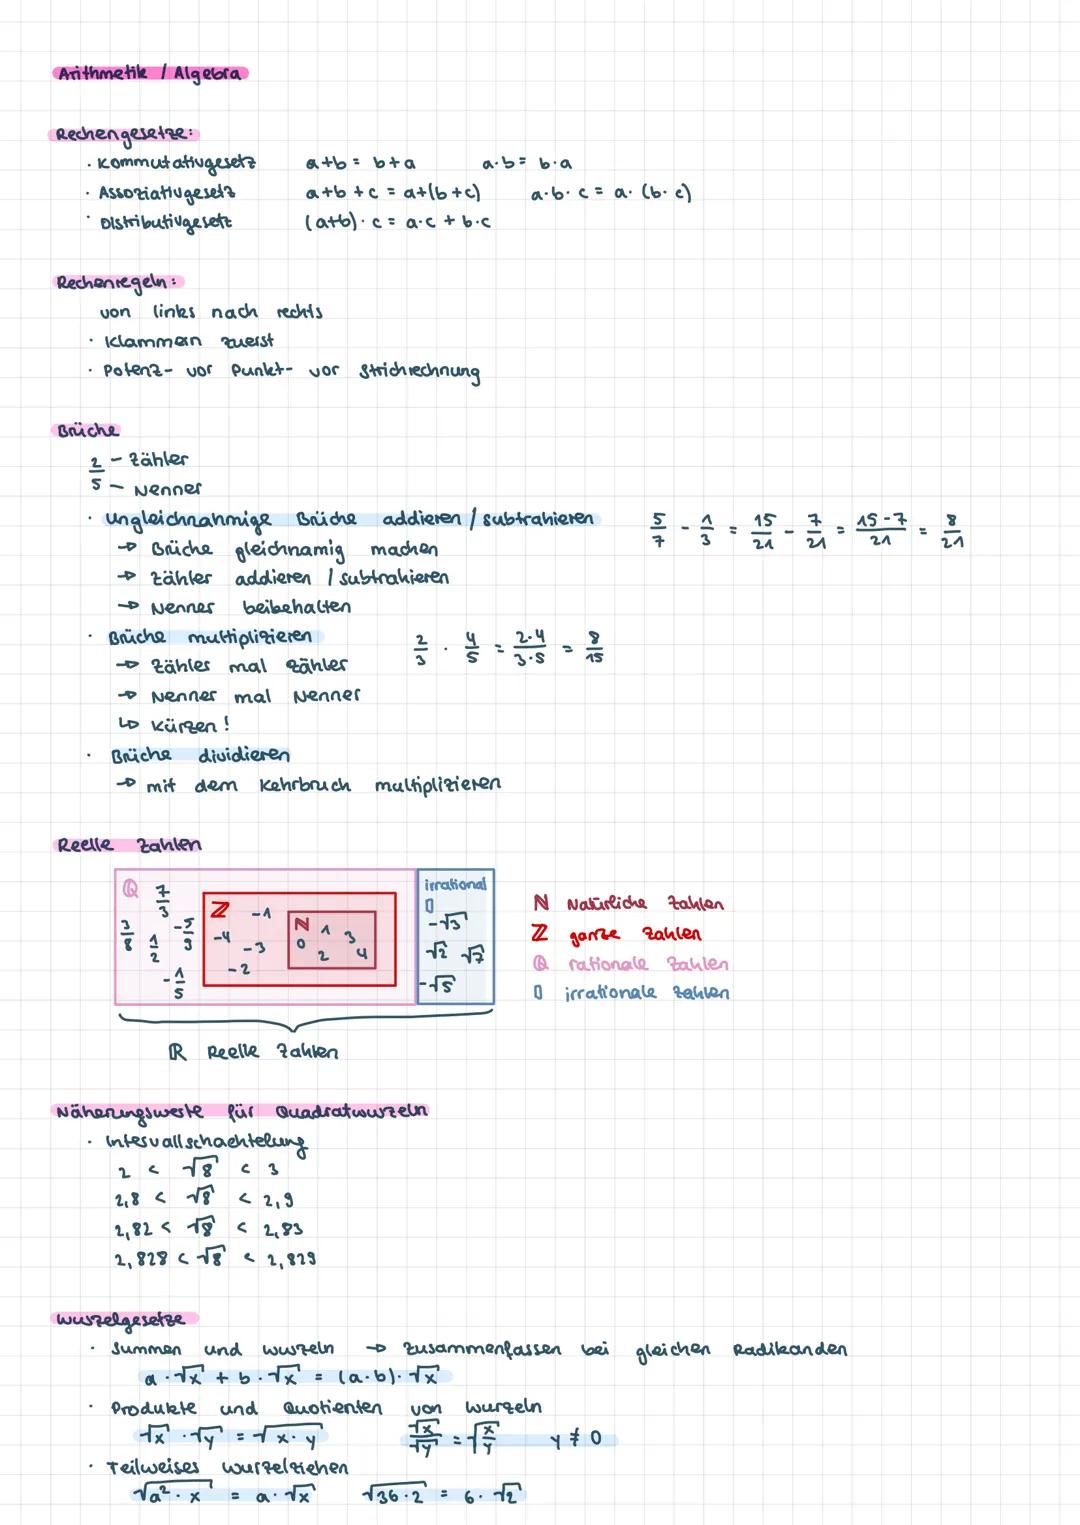 Arithmetik / Algebra
Rechengesetze:
· Kommutativgesetz a+b = b+a a·b = b·a
· Assoziativgesetz a+b+c = a+(b+c) a·b·c = a·(b·c)
· Distributivgesetz (a+b)·c = a·c + b·c
Rechenregeln:
von links nach rechts
· Klammern zuerst
· Potenz- vor Punkt- vor Strichrechnung
Brüche
2/5 – Zähler
– Nenner
· Ungleichnahmige Brüche addieren / subtrahieren 5/7 - 1/3 = 15/21 - 7/21 = 15-7/21 = 8/21
→ Brüche gleichnamig machen
→ Zähler addieren / subtrahieren
→ Nenner beibehalten
· Brüche multiplizieren 2/3 · 4/5 = 2·4/3·5 = 8/15
→ Zähler mal Zähler
→ Nenner mal Nenner
↳ Kürzen!
· Brüche dividieren
→ mit dem Kehrbruch multiplizieren
Reelle Zahlen
ℚ 7/3 3/8 1/2 -5/9 -1/5
ℤ -1 -4 -3 -2
ℕ 1 3 0 2 4
irrational
𝕀
-√3
√2 √7
-√5
ℕ Natürliche Zahlen
ℤ ganze Zahlen
ℚ rationale Zahlen
𝕀 irrationale Zahlen
ℝ Reelle Zahlen
Näherungswerte für Quadratwurzeln
· Intervallschachtelung
2 < √8 < 3
2,8 < √8 < 2,9
2,82 < √8 < 2,83
2,828 < √8 < 2,829
Wurzelgesetze
· Summen und Wurzeln → Zusammenfassen bei gleichen Radikanden
a·√x + b·√x = (a·b)·√x
· Produkte und Quotienten von Wurzeln
√x · √y = √x·y √x/√y = √x/y y ≠ 0
· Teilweises Wurzelziehen
√a²·x = a·√x √36·2 = 6·√2